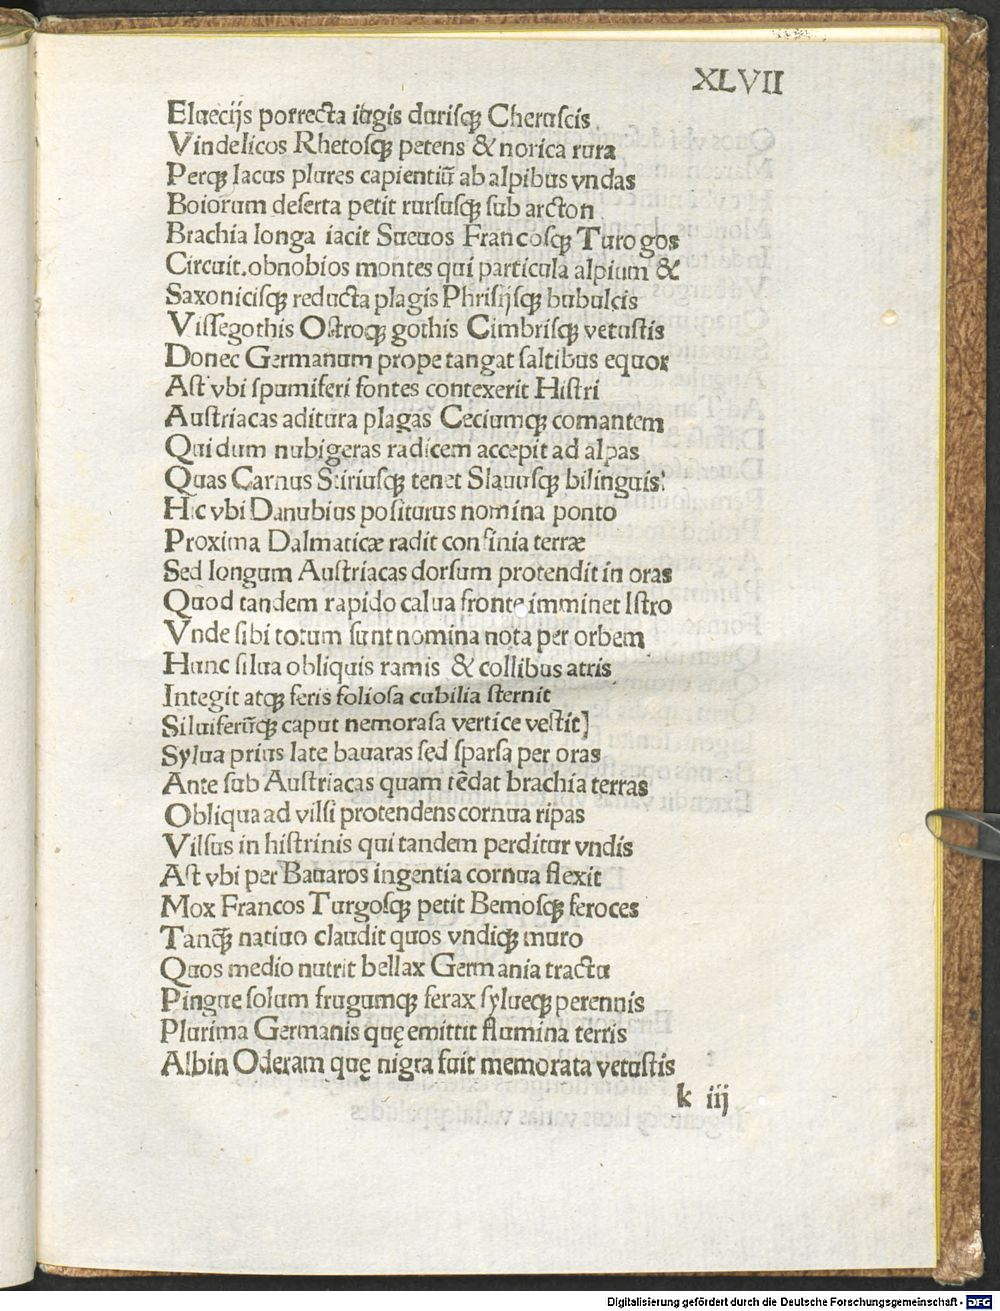 XLVII
Eluecijs porrecta iugis durisqꝫ Cheruscis
Vindelicos Rhetosqꝫ petens & norica rura
Perqꝫ lacus plures capientiũ ab alpibus vndas
Boiorum deserta petit rursusqꝫ sub arcton
Brachia longa iacit Sueuos Francosqꝫ Turogos
Circuit.obnobios montes qui particula alpium &
Saxonicisqꝫ reducta plagis Phrisijsqꝫ bubulcis
Vissegothis Ostroqꝫ gothis Cimbrisqꝫ vetustis
Donec Germanum prope tangat saltibus equor
Ast vbi spumiferi fontes contexerit Histri
Austriacas aditura plagas Ceciumqꝫ comantem
Qui dum nubigeras radicem accepit ad alpas
Quas Carnus Stiriusqꝫ tenet Slauusqꝫ bilinguis:
Hic vbi Danubius positurus nomina ponto
Proxima Dalmaticæ radit confinia terræ
Sed longum Austriacas dorsum protendit in oras
Quod tandem rapido calua fronte imminet Istro
Vnde sibi totum sunt nomina nota per orbem
Hunc silua obliquis ramis & collibus atris
Integit atqꝫ feris foliosa cubilia sternit
Siluiferũqꝫ caput nemorasa vertice vestit]
Sylua prius late bauaras sed sparsa per oras
Ante sub Austriacas quam tẽdat brachia terras
Obliqua ad vilsi protendens cornua ripas
Vilsus in histrinis qui tandem perditur vndis
Ast vbi per Bauaros ingentia cornua flexit
Mox Francos Turgosqꝫ petit Bemosqꝫ feroces
Tanqꝫ̃ natiuo claudit quos vndiqꝫ muro
Quos medio nutrit bellax Germania tractu
Pingue solum frugumqꝫ ferax sylueqꝫ perennis
Plurima Germanis quę emittit flumina terris
Albin Oderam quę nigra fuit memorata vetustis
k iij
Digitalisierung gefördert durch die Deutsche Forschungsgemeinschaft - DFG